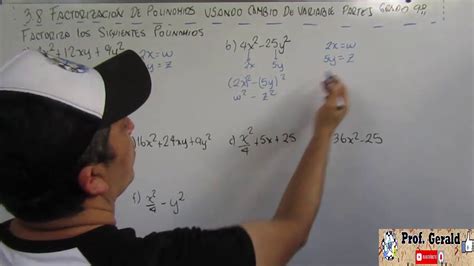 3.8 FACTORIZACIÓN DE POLINOMIOS USANDO CAMBIO DE VARIABLE PARTE5 GRADO 9º
FACTORIZA LOS SIGUIENTES POLINOMIOS
x²+12xy+9y²
2x=w
y=z
b) 4x²-25y²
2x 5y
(2x)²-(5y)²
w² - z²
2x=w
5y=z
)16x²+24xy+9y²
x²/4+5x+25
36x²-25
f) x²/4 - y²
Prof. Gerald